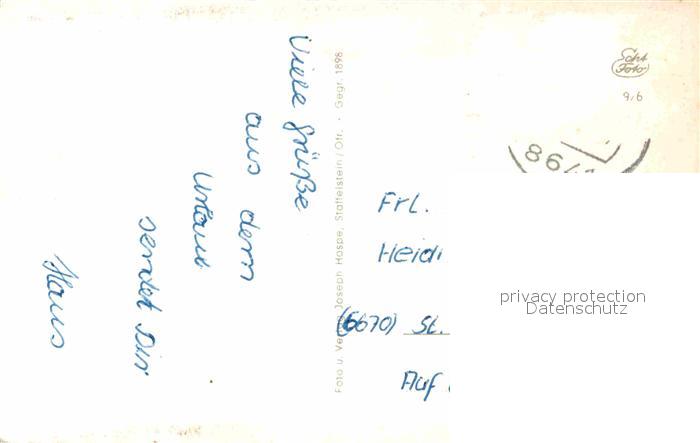 Viele Grüße
aus dem
Urlaub
sendet Dir
Klaus
Foto u. Verlag Joseph Haspe, Staffelstein/Ofr. · Gegr. 1898
Echt
Foto
9/6
Frl.
Heidi
(6670) St.
Auf
privacy protection
Datenschutz